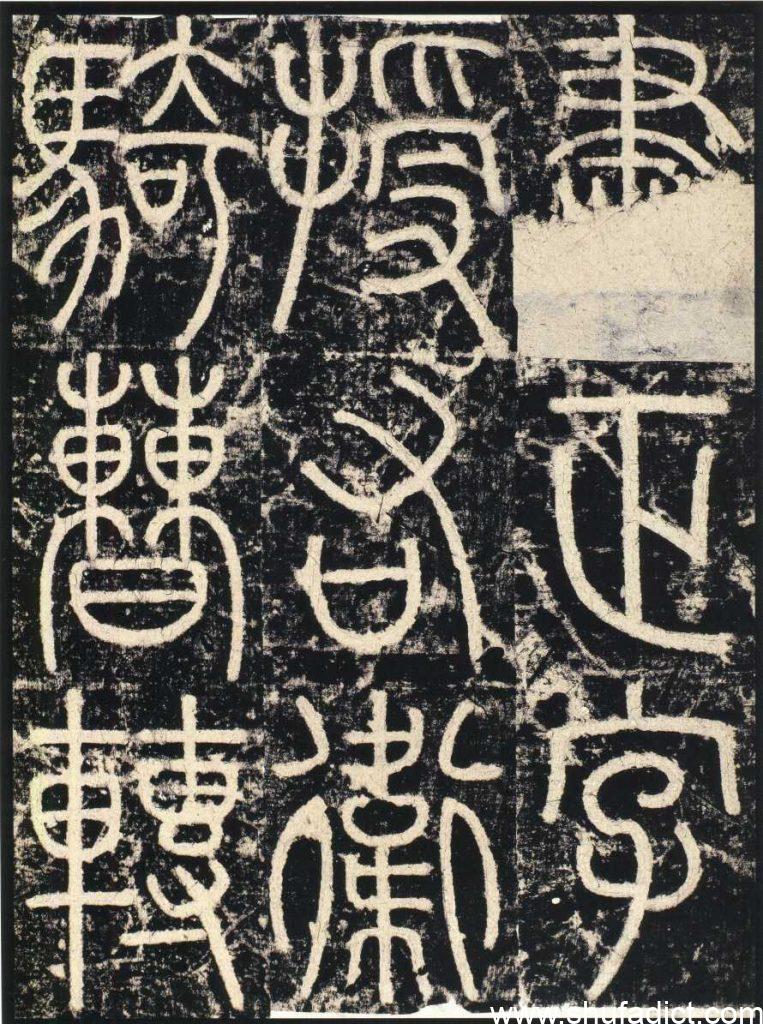 書正字
授右衛
騎曹轉
www.shufadict.com